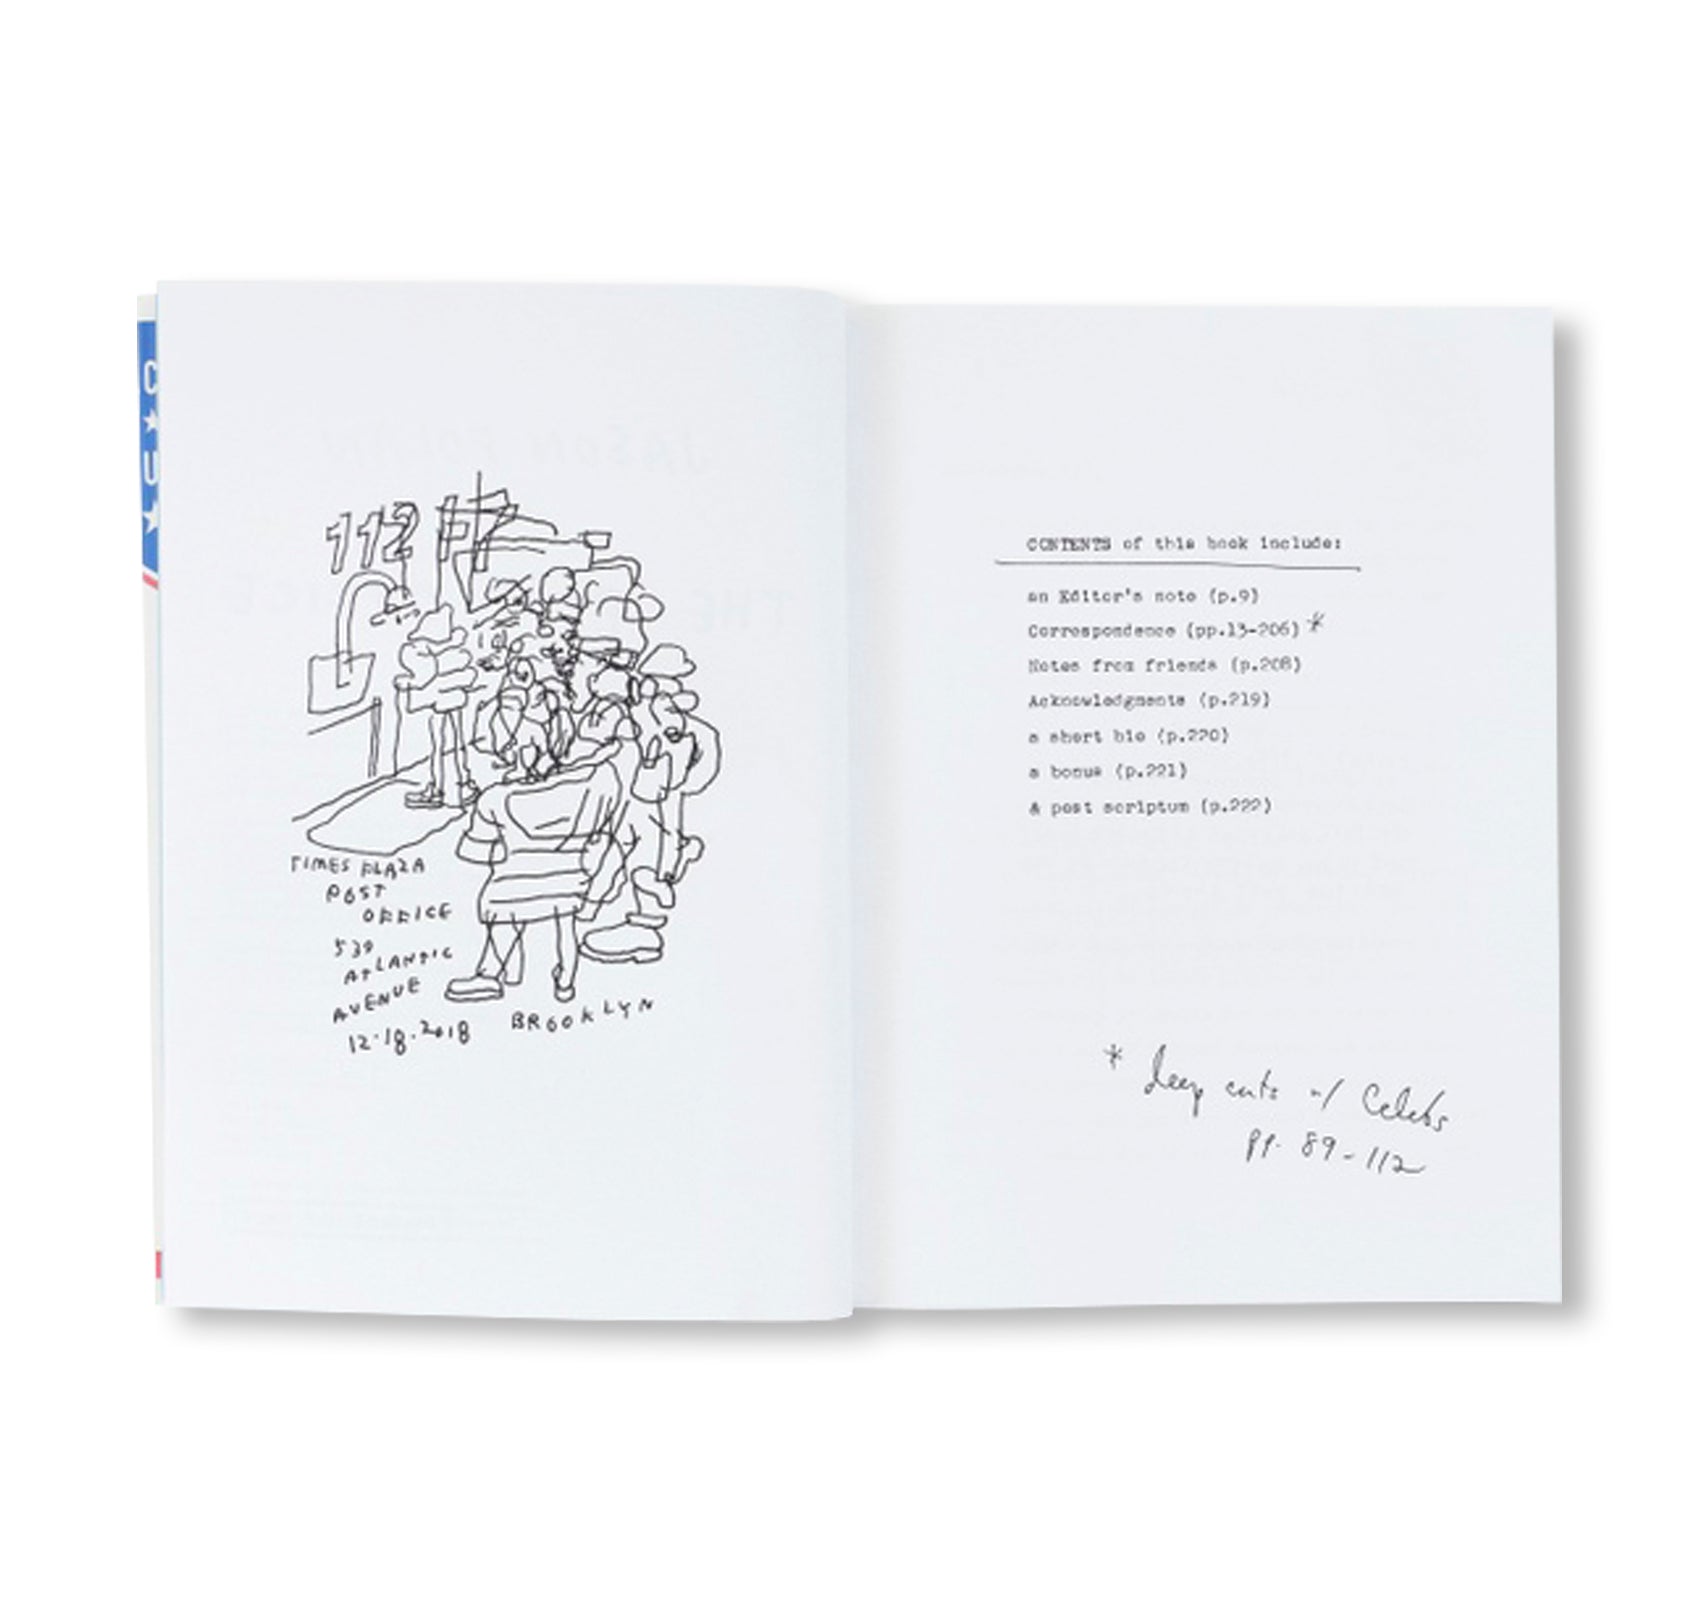 C
U
112
TIMES PLAZA
POST
OFFICE
539
ATLANTIC
AVENUE
12.18.2018
BROOKLYN
CONTENTS of this book include:
an Editor's note (p.9)
Correspondence (pp.13-206) *
Notes from friends (p.208)
Acknowledgments (p.219)
a short bio (p.220)
a bonus (p.221)
& post scriptum (p.222)
* deep cuts w/ Celebs
pp. 89-112